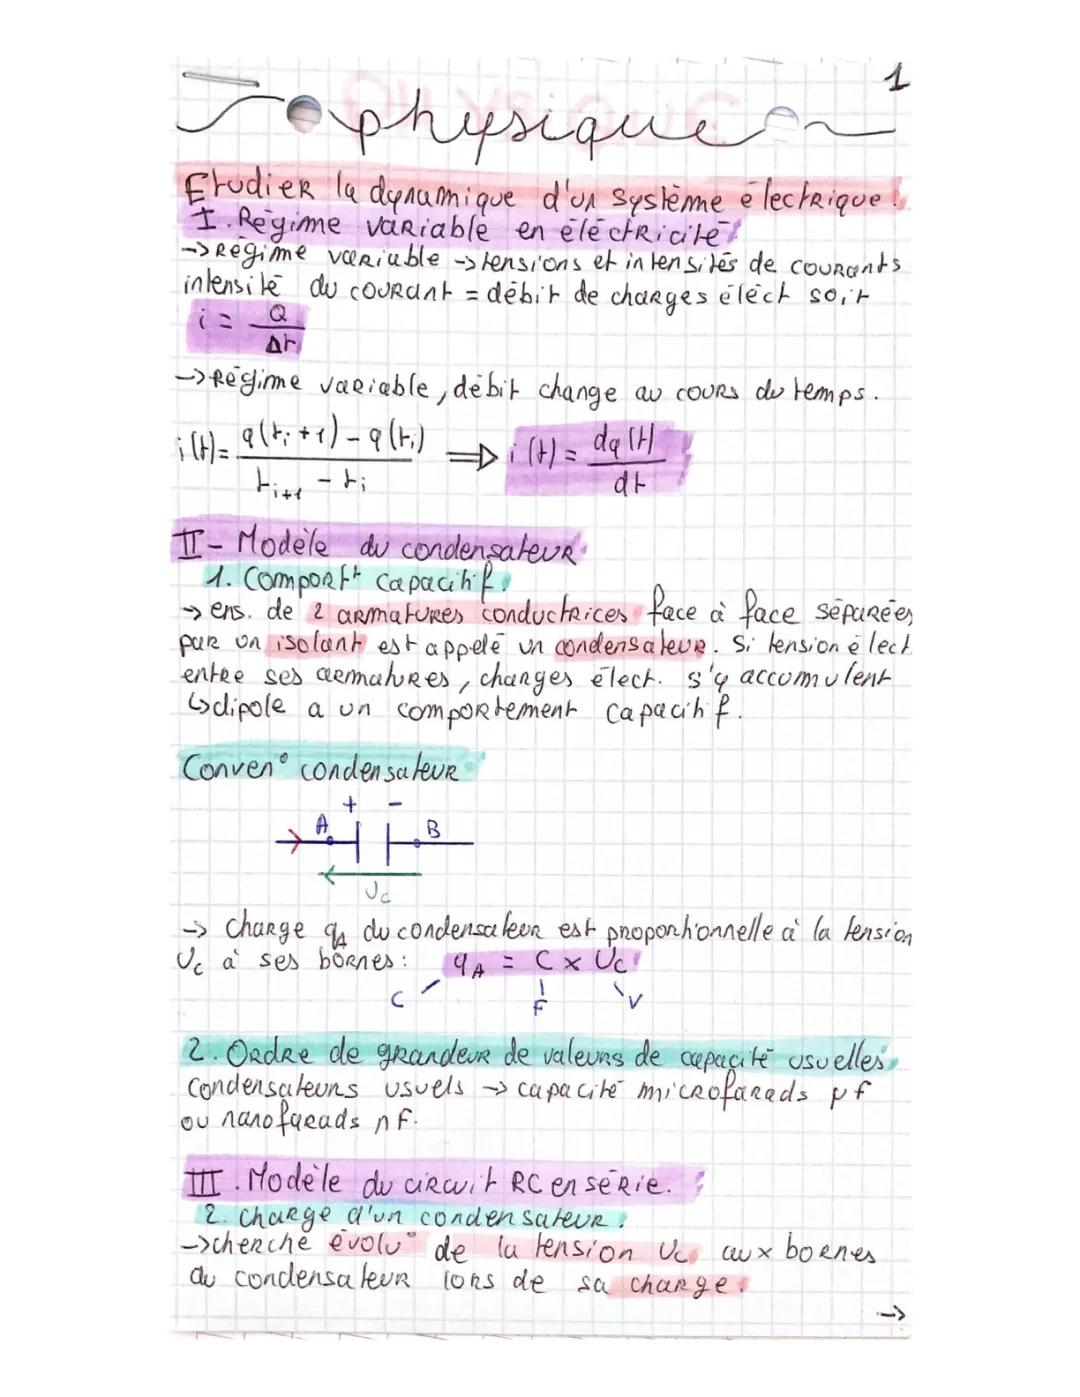 1
physique
Etudier la dynamique d'un système électrique !
I. Régime variable en éléctricité !
-> Régime variable -> tensions et intensités de courants
intensité du courant = débit de charges éléct soit
i = Q / Δt
-> Régime variable, débit change au cours du temps.
i(t) = q(ti+1) - q(ti) / ti+1 - ti ⟹ i(t) = dq(t) / dt
II - Modèle du condensateur
1. Comportt capacitif.
-> ens. de 2 armatures conductrices face à face séparées
par un isolant est appelé un condensateur. Si tension élect
entre ses armatures, charges élect. s'y accumulent
↳ dipole a un comportement capacitif.
Conven° condensateur
+ -
A B
Uc
-> charge qA du condensateur est proportionnelle à la tension
Uc à ses bornes : qA = C x Uc
C F V
2. Ordre de grandeur de valeurs de capacité usuelles
condensateurs usuels -> capacité microfarads μf
ou nanofarads nF.
III. Modèle du circuit RC en série.
2. charge d'un condensateur.
-> cherche évolu° de la tension Uc aux bornes
du condensateur lors de sa charge.
->